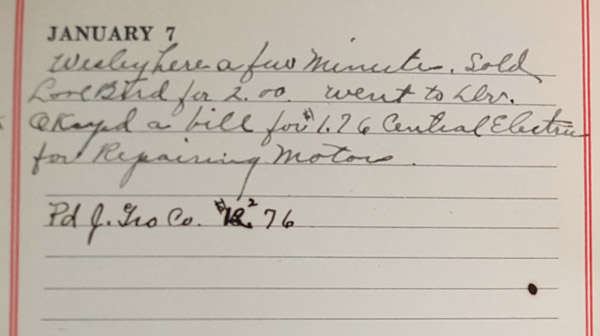 JANUARY 7
Wesley here a few Minutes. Sold
Love Bird for 2.00. went to Drs.
OKayed a bill for $1.76 Central Electric
for Repairing Motors.
Pd J. Gro Co. 76